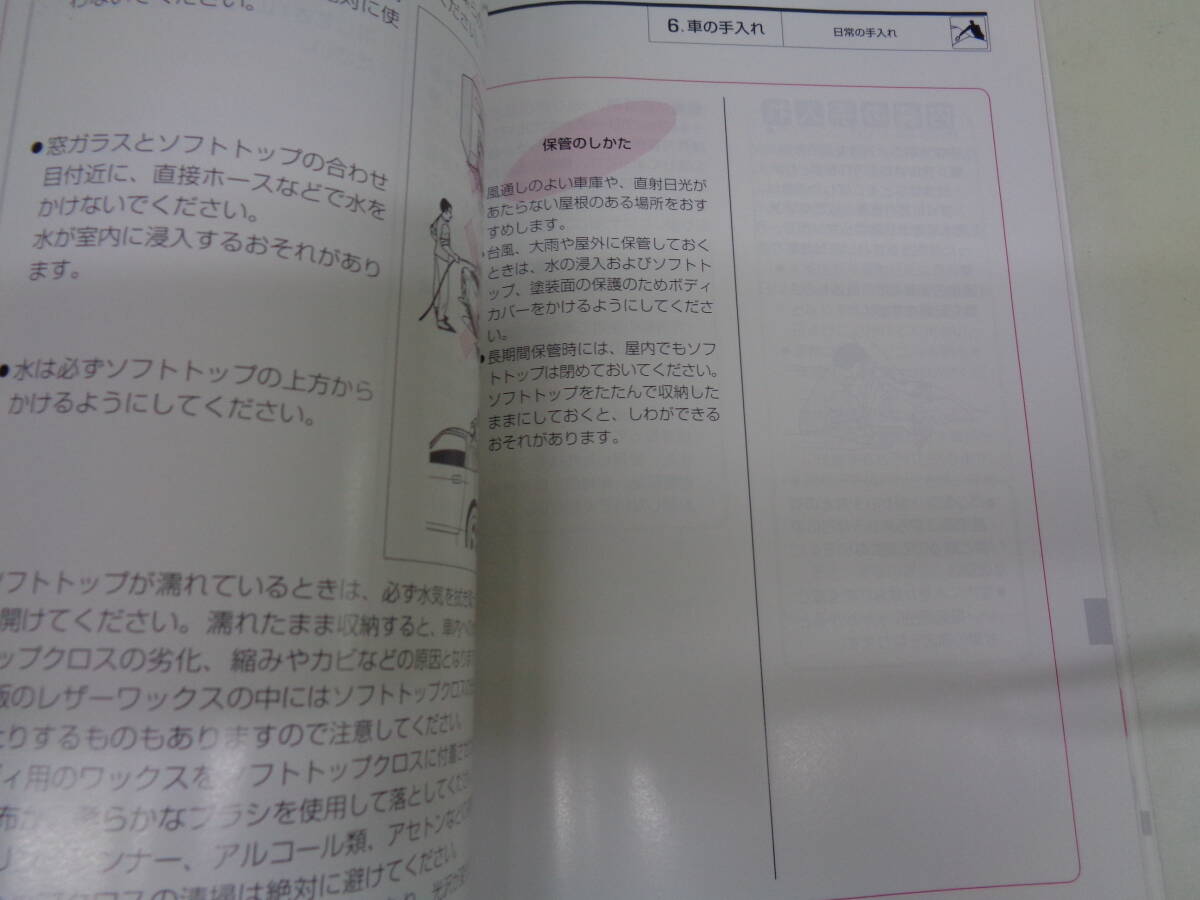 わないでください。
絶対に使
ください
●窓ガラスとソフトトップの合わせ
目付近に、直接ホースなどで水を
かけないでください。
水が室内に浸入するおそれがあり
ます。
●水は必ずソフトトップの上方から
かけるようにしてください。
ソフトトップが濡れているときは、必ず水気を
開けてください。濡れたまま収納すると、車内への
ップクロスの劣化、縮みやカビなどの原因となりま
販のレザーワックスの中にはソフトトップクロス
たりするものもありますので注意してください。
ディ用のワックスをソフトトップクロスに付着
布か、柔らかなブラシを使用して落としてくださ
ンナー、アルコール類、アセトンなど
の清掃は絶対に避けてください。
6.車の手入れ
日常の手入れ
保管のしかた
風通しのよい車庫や、直射日光が
あたらない屋根のある場所をおす
すめします。
●台風、大雨や屋外に保管しておく
ときは、水の浸入およびソフトト
ップ、塗装面の保護のためボディ
カバーをかけるようにしてくださ
い。
●長期間保管時には、屋内でもソフ
トトップは閉めておいてください。
ソフトトップをたたんで収納した
ままにしておくと、しわができる
おそれがあります。